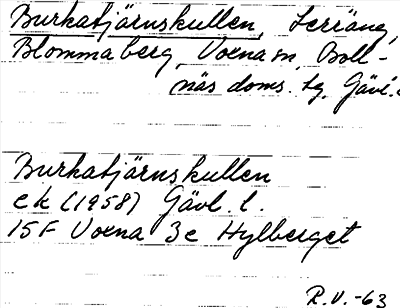 Burkatjärnskullen, terräng,
Blommaberg, Voxna sn, Boll-
näs doms. tg, Gävl.
Burkatjärnskullen
ek (1958) Gävl. l.
15F Voxna 3e Hylberget
R.V.-63